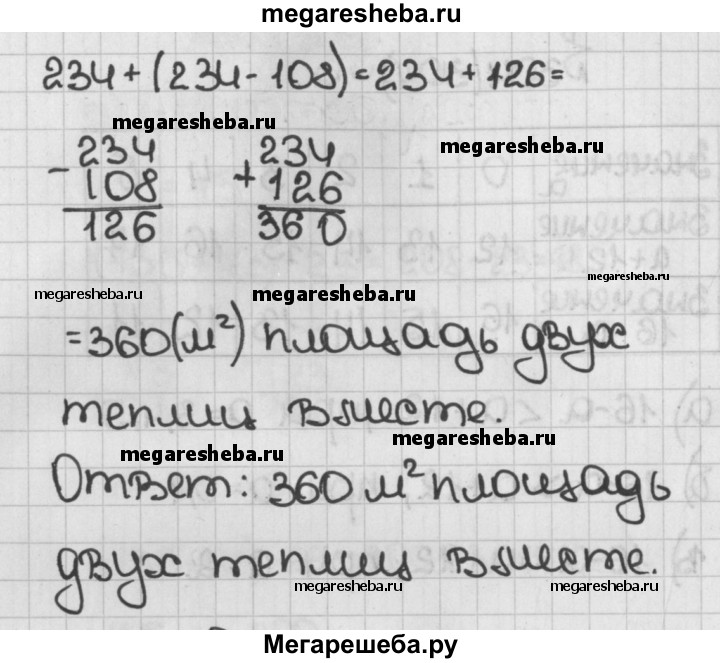 megaresheba.ru
234+(234-108)=234+126=
megaresheba.ru
megaresheba.ru
- 234 + 234
108 126
126 360
megaresheba.ru
megaresheba.ru
megaresheba.ru
=360(м²) площадь двух
теплиц вместе.
megaresheba.ru
megaresheba.ru
Ответ: 360 м² площадь
двух теплиц вместе.
megaresheba.ru
megaresheba.ru
Мегарешеба.ру